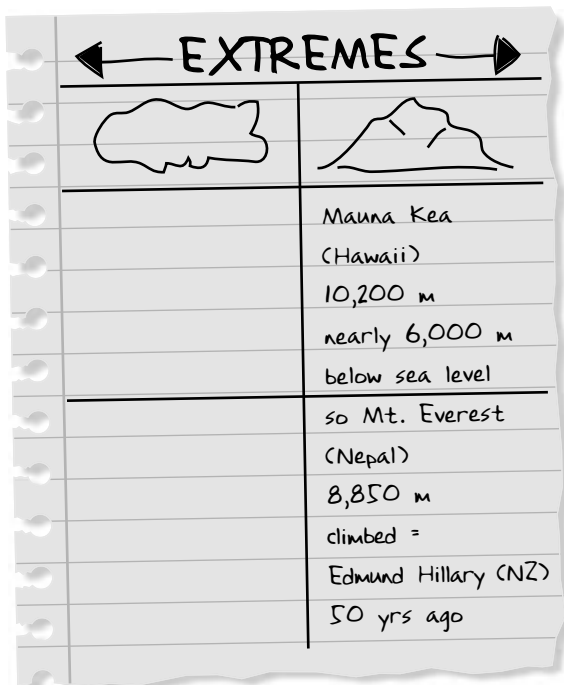 EXTREMES
Mauna Kea
(Hawaii)
10,200 m
nearly 6,000 m
below sea level
so Mt. Everest
(Nepal)
8,850 m
climbed =
Edmund Hillary (NZ)
50 yrs ago